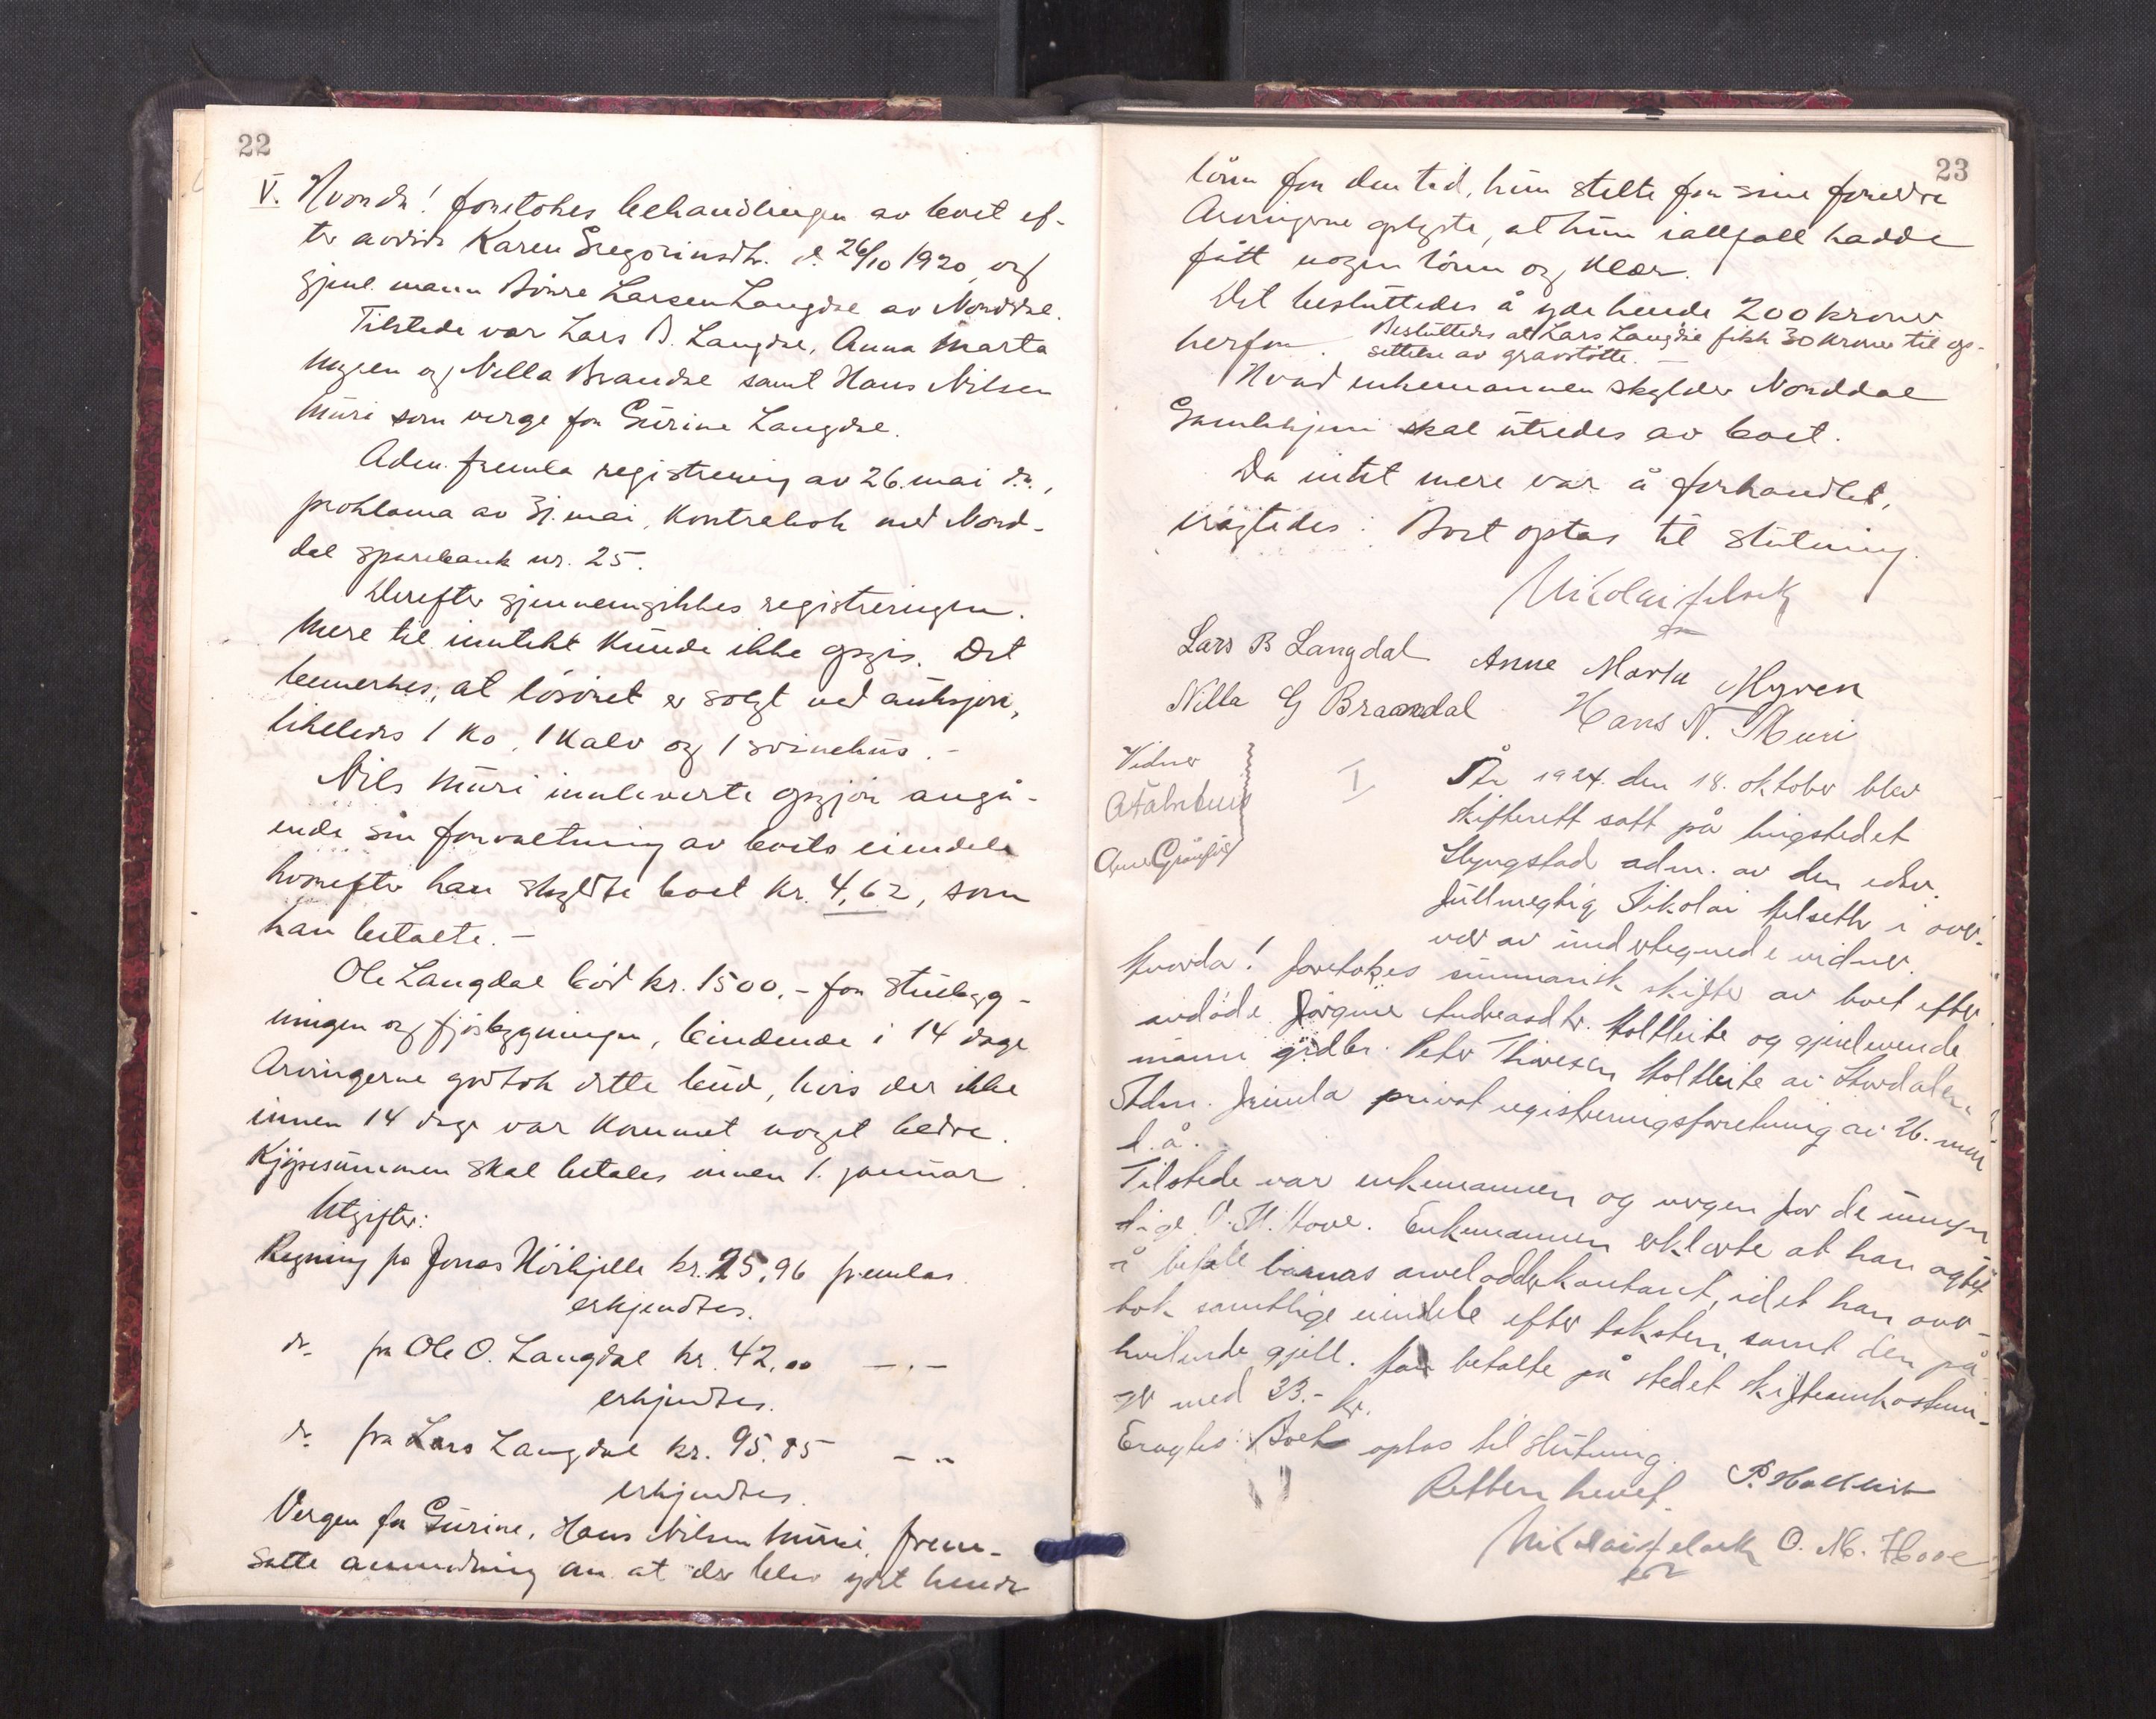 22
V. Hvorda! foretokes behandlingen av boet ef-
ter avdøde Karen Gregoriusdtr. d. 26/10 1920 og
gjenl. mann Børre Larsen Langdal av Norddal.
Tilstede var Lars B. Langdal, Anna Marta
Myren og Nella Brandal samt Hans Nilsen
Muri som verge for Gurine Langdal.
Adm. fremla registrering av 26. mai d.å.,
proklama av 31. mai, kontrabok med Nord-
dal sparebank nr. 25.
Derefter gjennemgikkes registreringen.
Mere til inntekt kunde ikke opgis. Det
bemerkes, at løsøret er solgt ved auksjon,
likeledes 1 ko, 1 kalv og 1 svinehus. -
Nils Muri innleverte opgjør angå-
ende sin forvaltning av boets eiendele
hvorefter han skyldte boet kr. 4,62, som
han betalte. -
Ole Langdal bød kr. 1500.- for stuebyg-
ningen og fjøsbygningen, bindende i 14 dage
Arvingerne godtok dette bud, hvis der ikke
innen 14 dage var kommet noget bedre.
Kjøpesummen skal betales innen 1. januar.
Utgifter:
Regning fra Jonas Hörhjelle kr. 25,96 fremlas
erkjendtes.
do. fra Ole O. Langdal kr. 42,00 -.-
erkjendtes.
do. fra Lars Langdal kr. 95.85 -.-
erkjendtes.
Vergen for Gurine, Hans Nilsen Muri, frem-
satte anmodning om at der blev ydet hende
23
lønn for den tid, hun stelte for sine foreldre
Arvingerne oplyste, at hun iallfall hadde
fått nogen lønn og klær.
Det besluttedes å yde hende 200 kroner
herfor. Besluttedes at Lars Langdal fikk 30 kroner til op-
settelse av gravstøtte.
Hvad enkemannen skylder Norddal
Gamlehjem skal utredes av boet.
Da intet mere var å forhandlet,
eragtedes: Boet optas til slutning.
Nikolai Helseth
Lars B Langdal Anne Marta Myren
Nilla G Braandal Hans N. Muri
Vidner
I År 1924. den 18. oktober blev
skifterett satt på tingstedet
Slyngstad adm. av den edsv.
fullmegtig Nikolai Helseth i over-
vær av undertegnede vidner.
Hvorda! foretokes summarisk skifte av boet efter
avdøde Jørgine Andreasdtr. Holtleite og gjenlevende
mann grdbr. Peter Thoresen Holtleite av Stordalen
Adm. fremla privat registreringsforretning av 26. mai
d.å.
Tilstede var enkemannen og vergen for de umyn
dige O. M. Hove. Enkemannen erklærte at han agtet
å betale barnas arvelodder kontant, idet han over-
tok samtlige eiendele efter taksten, samt den på
hvilende gjeld. Han betalte på stedet skifteomkostnin-
ger med 33.- kr.
Eragtes: Boet optas til slutning.
Retten hevet. P. Holtleite
Nikolai Helseth O. M. Hove